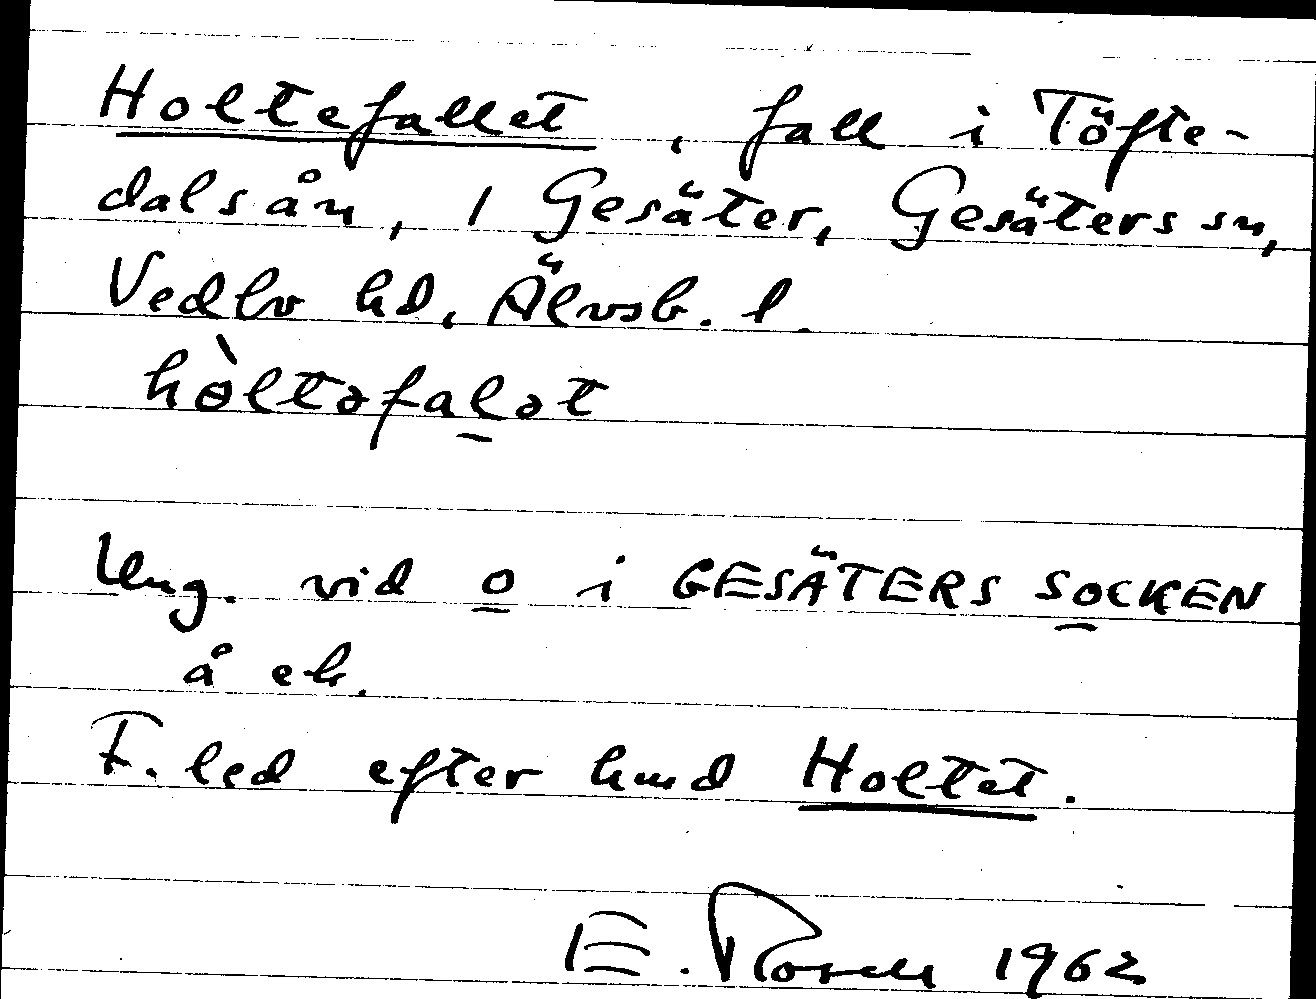 Holtefallet, fall i Töfte-
dalsån, 1 Gesäter, Gesäters sn,
Vedbo hd, Älvsb. l.
hòltəfal̠ət
Ung. vid o̲ i GESÄTERS SO̲CKEN
å ek.
F. led efter hmd Holtet.
E. 1962